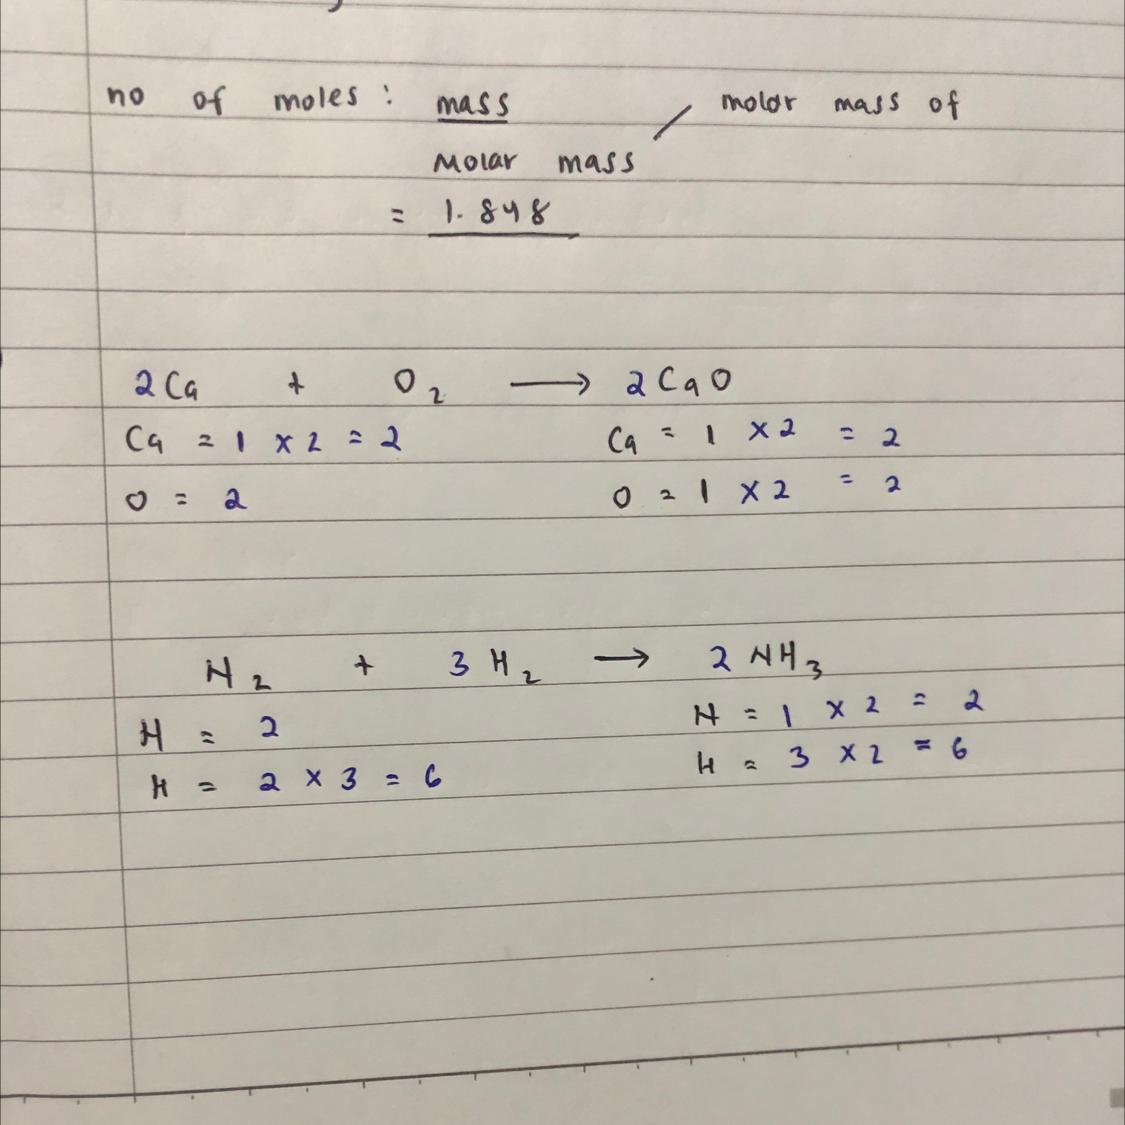 no of moles : mass / molar mass of
Molar mass
= 1.848
2Ca + O₂ → 2CaO
Ca = 1 x 2 = 2 Ca = 1 x 2 = 2
O = 2 O = 1 x 2 = 2
N₂ + 3H₂ → 2NH₃
N = 2 N = 1 x 2 = 2
H = 2 x 3 = 6 H = 3 x 2 = 6